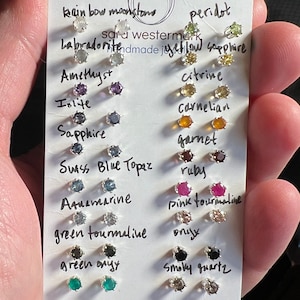 rainbow moonstone
peridot
sara westermark
handmade
Labradorite
yellow sapphire
Amethyst
citrine
Iolite
Carnelian
Sapphire
garnet
Swiss Blue Topaz
ruby
Aquamarine
pink tourmaline
green tourmaline
onyx
green onyx
smoky quartz